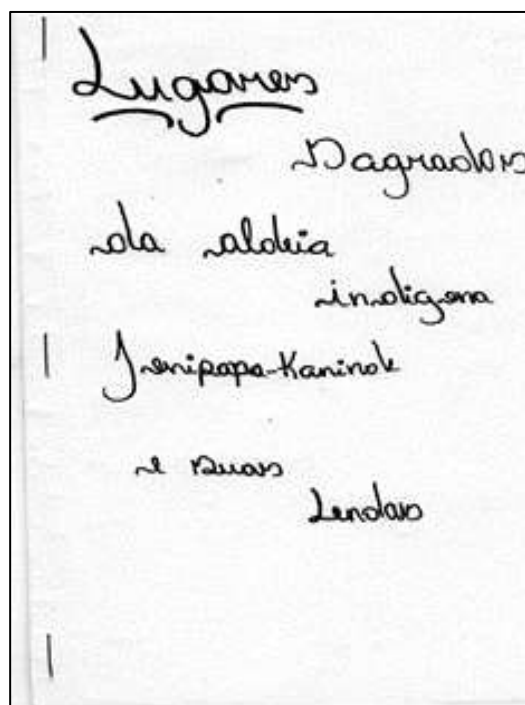 Lugares
Sagrados
da aldeia
indigena
Jenipapo-Kanindé
e suas
Lendas